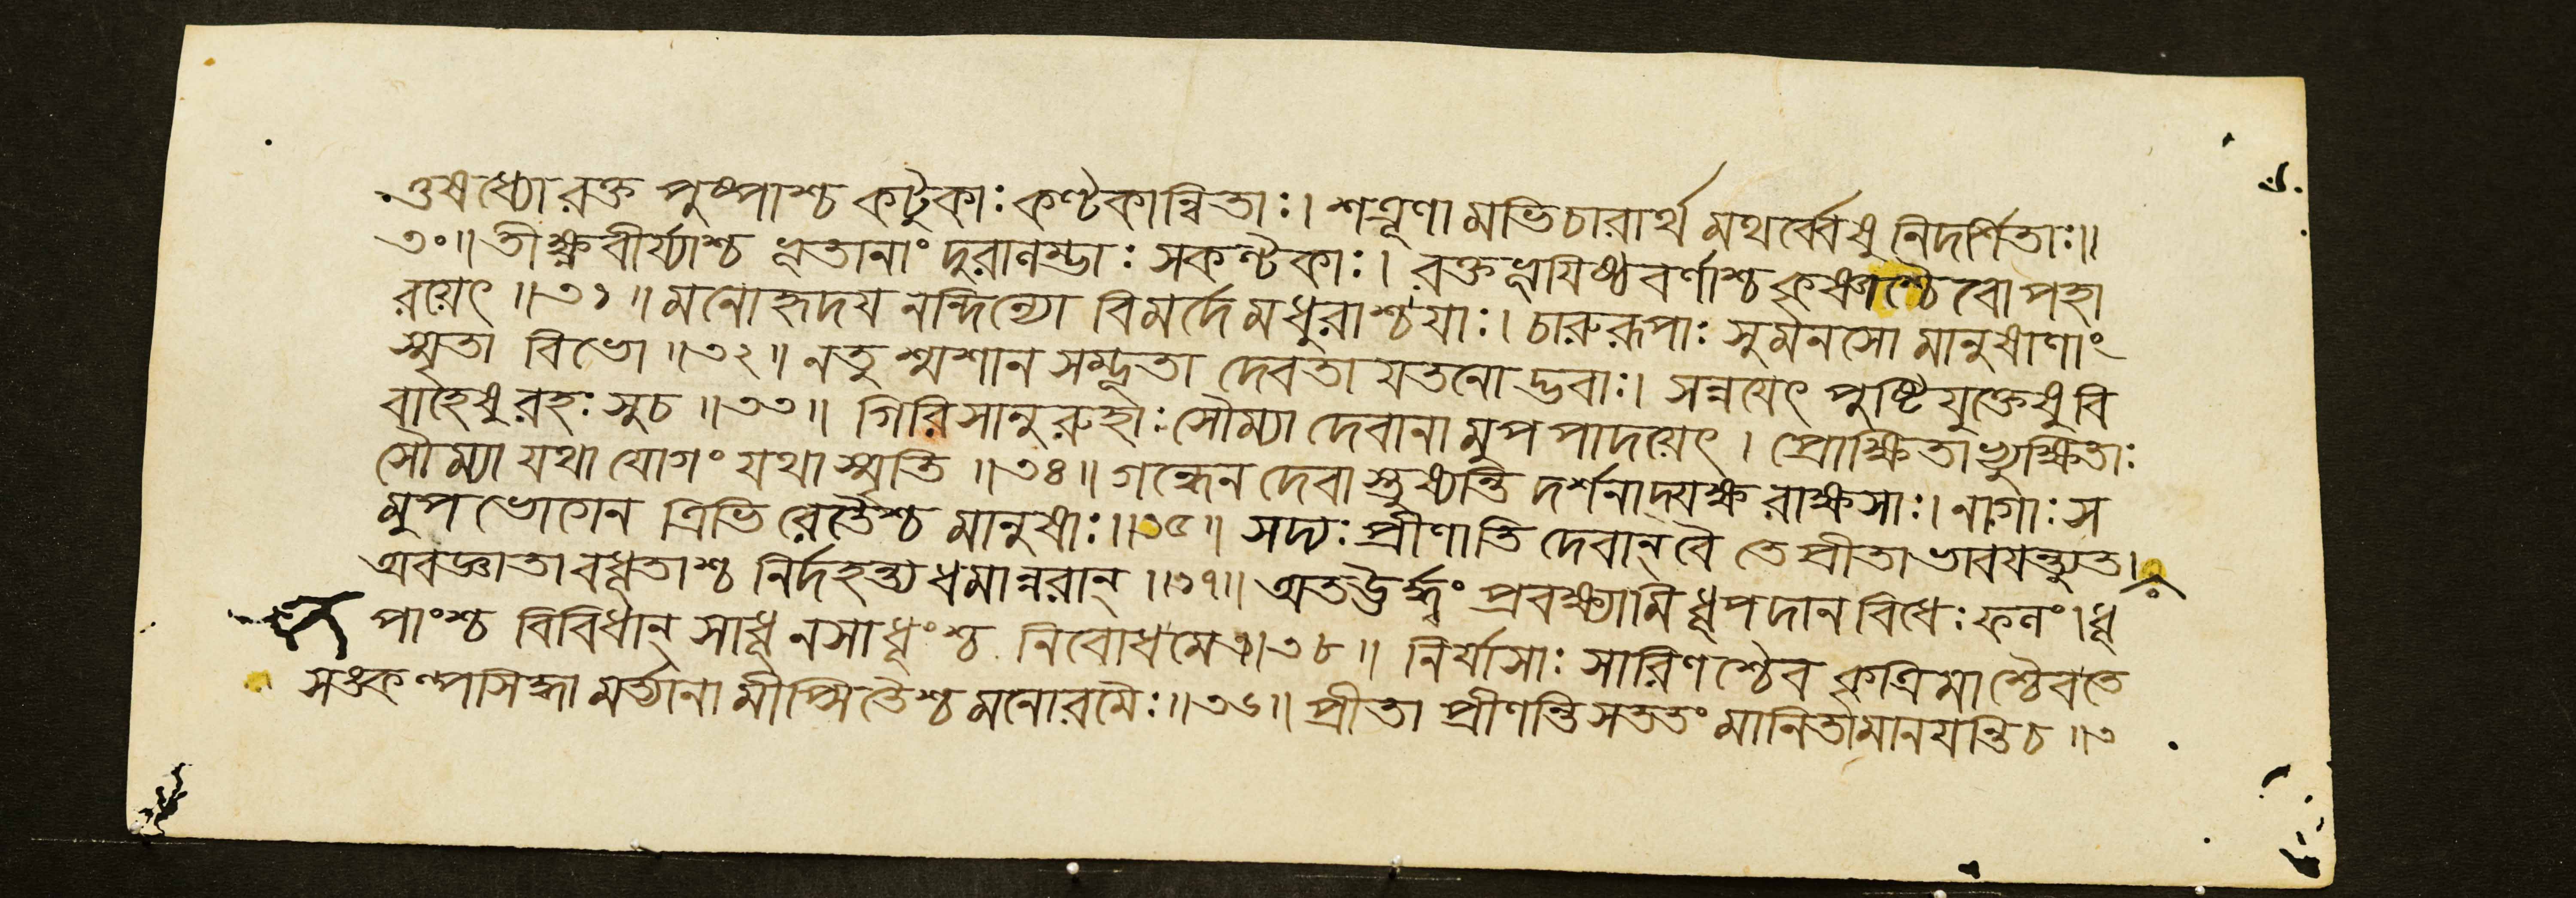 ওষধ্যো রক্ত পুষ্পাশ্চ কটুকাঃ কণ্টকান্বিতাঃ। শত্রূণা মভিচারার্থ মথর্ব্বেষু নিদর্শিতাঃ॥
৩০॥ তীক্ষ্ণবীর্য্যাশ্চ ভূতানাং দুরালম্ভাঃ সকণ্টকাঃ। রক্তভূয়িষ্ঠবর্ণাশ্চ কৃষ্ণাশ্চৈ বোপহা
রয়েৎ ॥৩১॥ মনোহৃদয় নন্দিন্যো বিমর্দে মধুরাশ্চয়াঃ। চারুরূপাঃ সুমনসো মানুষাণাং
স্মৃতা বিভো ॥৩২॥ নতু শ্মশান সম্ভূতা দেবতা য়তনো দ্ভবাঃ। সন্নয়েৎ পুষ্টি যুক্তেষু বি
বাহেষু রহঃ সুচ ॥৩৩॥ গিরিসানুরুহাঃ সৌম্যা দেবানা মুপপাদয়েৎ। প্রোক্ষিতাভ্যুক্ষিতাঃ
সৌম্যা যথা যোগং যথা স্মৃতি ॥৩৪॥ গন্ধেন দেবা স্তুষ্যন্তি দর্শনাদ্যক্ষ রাক্ষসাঃ। নাগাঃ স
মুপভোগেন ত্রিভি রেতৈশ্চ মানুষাঃ॥৩৫॥ সদ্যঃ প্রীণাতি দেবান্ বৈ তে প্রীতা ভাবয়ন্ত্যুত।
অবজ্ঞাতাবধূতাশ্চ নির্দহন্ত্য ধমান্নরান্ ॥৩৭॥ অতঊর্দ্ধ্বং প্রবক্ষ্যামি ধূপদান বিধেঃ ফলং। ধূ
পাংশ্চ বিবিধান্ সাধূ নসাধূংশ্চ নিবোধমে॥৩৮॥ নির্যাসাঃ সারিণশ্চৈব কৃত্রিমাশ্চৈবতে
সঙ্কল্পসিদ্ধা মর্ত্যানা মীপ্সিতৈশ্চ মনোরমৈঃ॥৩৬॥ প্রীতা প্রীণন্তি সততং মানিতামানয়ন্তিচ ॥৩